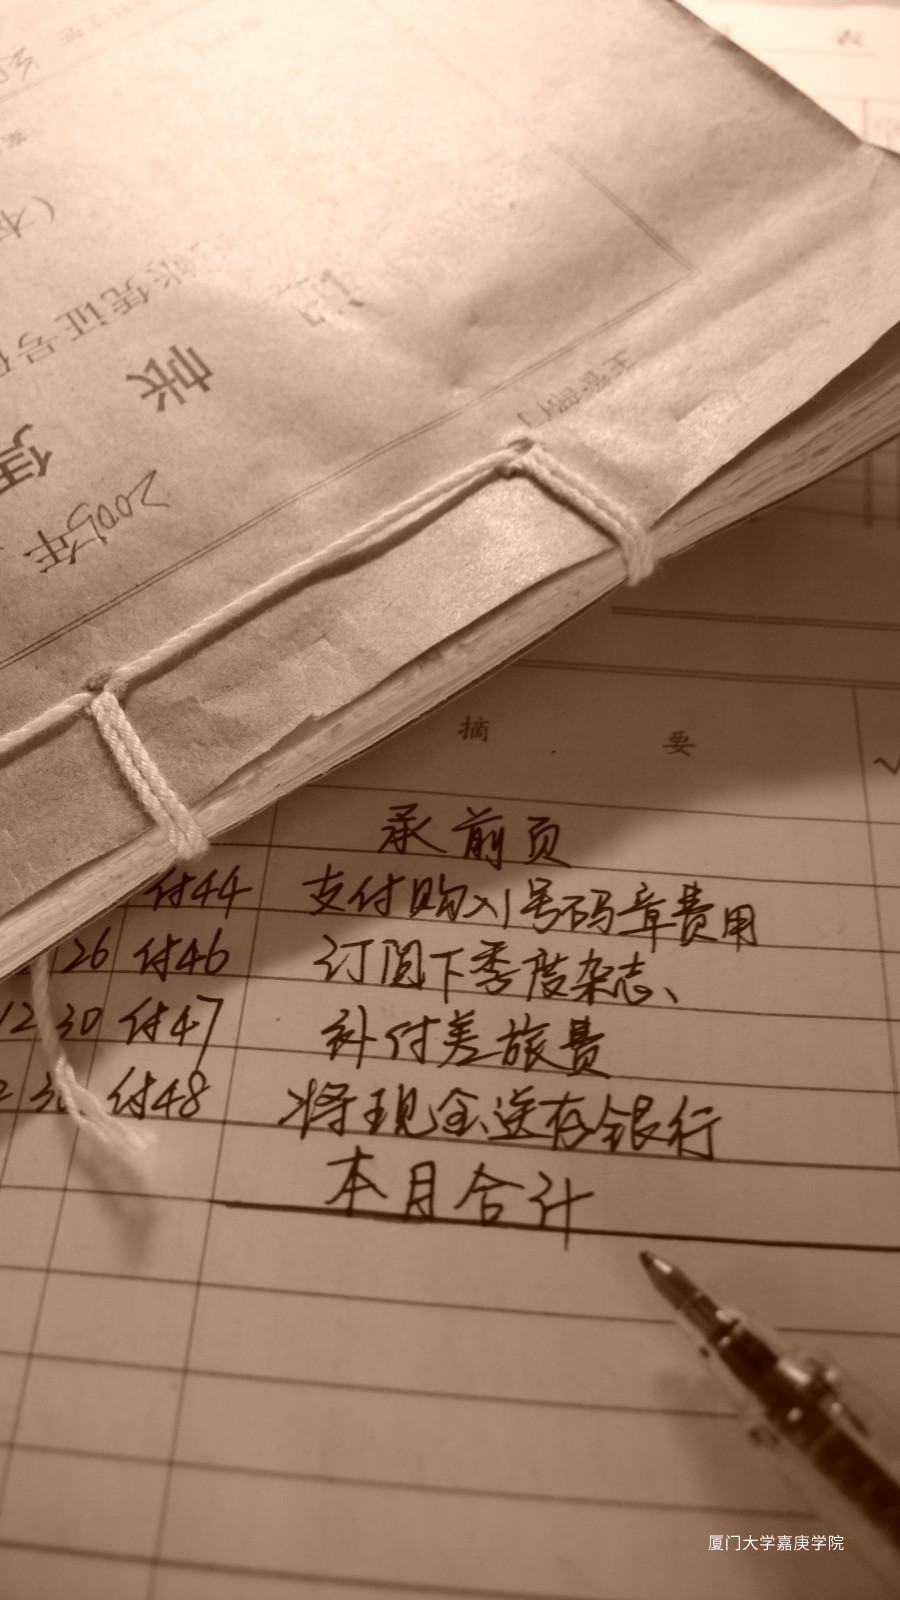 主管部门
帐
2005年
记帐凭证号
摘 要
承前页
付44 支付购入1号码章费用
26 付46 订阅下季度杂志、
12 30 付47 补付差旅费
2 30 付48 将现金送存银行
本月合计
厦门大学嘉庚学院